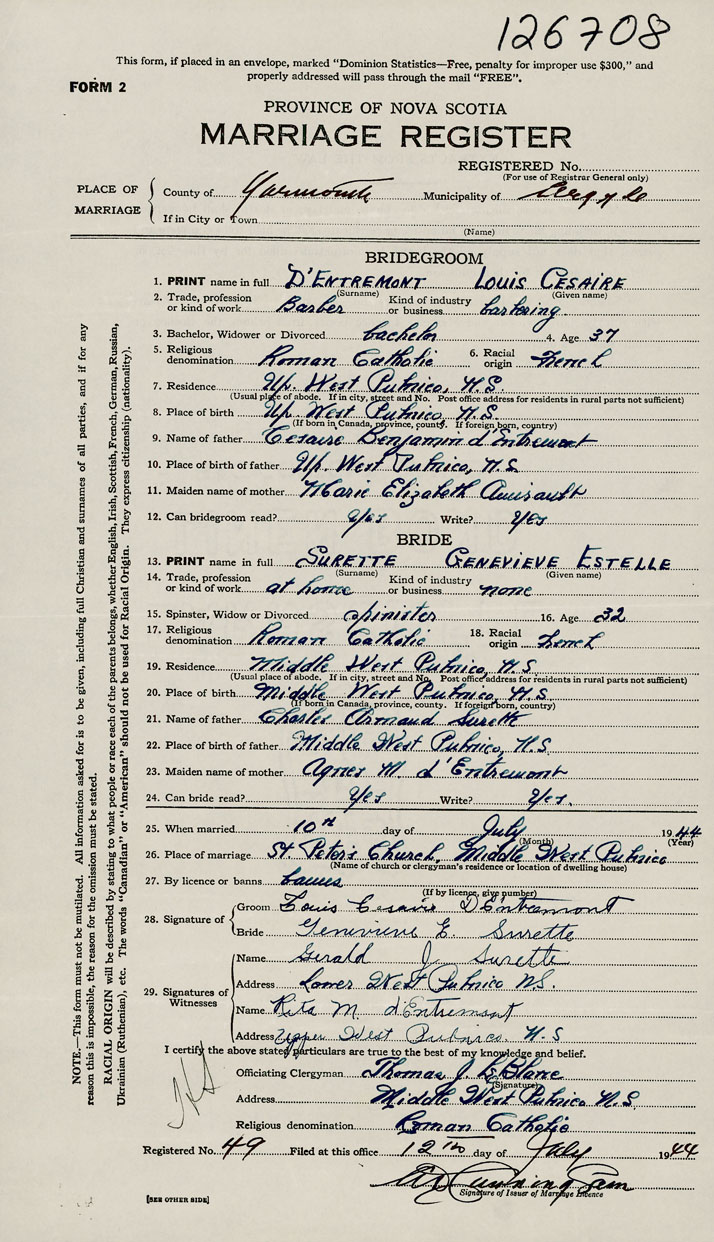 126708
This form, if placed in an envelope, marked "Dominion Statistics—Free, penalty for improper use $300," and
properly addressed will pass through the mail "FREE".
FORM 2
PROVINCE OF NOVA SCOTIA
MARRIAGE REGISTER
REGISTERED No.
(For use of Registrar General only)
PLACE OF MARRIAGE
County of Yarmouth Municipality of Argyle
If in City or Town
(Name)
BRIDEGROOM
1. PRINT name in full D'ENTREMONT LOUIS CESAIRE
(Surname) (Given name)
2. Trade, profession or kind of work Barber Kind of industry or business barbering
3. Bachelor, Widower or Divorced bachelor 4. Age 37
5. Religious denomination Roman Catholic 6. Racial origin French
7. Residence Up. West Pubnico, N.S.
(Usual place of abode. If in city, street and No. Post office address for residents in rural parts not sufficient)
8. Place of birth Up. West Pubnico, N.S.
(If born in Canada, province, county. If foreign born, country)
9. Name of father Cesaire Benjamin d'Entremont
10. Place of birth of father Up. West Pubnico, N.S.
11. Maiden name of mother Marie Elizabeth Amirault
12. Can bridegroom read? Yes Write? Yes
BRIDE
13. PRINT name in full SURETTE GENEVIEVE ESTELLE
(Surname) (Given name)
14. Trade, profession or kind of work at home Kind of industry or business none
15. Spinster, Widow or Divorced spinister 16. Age 32
17. Religious denomination Roman Catholic 18. Racial origin French
19. Residence Middle West Pubnico, N.S.
(Usual place of abode. If in city, street and No. Post office address for residents in rural parts not sufficient)
20. Place of birth Middle West Pubnico, N.S.
(If born in Canada, province, county. If foreign born, country)
21. Name of father Charles Armand Surette
22. Place of birth of father Middle West Pubnico, N.S.
23. Maiden name of mother Agnes M. d'Entremont
24. Can bride read? Yes Write? Yes.
25. When married 10th day of July 1944
(Month) (Year)
26. Place of marriage St. Peter's Church, Middle West Pubnico
(Name of church or clergyman's residence or location of dwelling house)
27. By licence or banns banns
(If by licence, give number)
28. Signature of
Groom Louis Cesaire D'Entremont
Bride Genevieve E. Surette
29. Signatures of Witnesses
Name Gerald J. Surette
Address Lower West Pubnico N.S.
Name Rita M. d'Entremont
Address Upper West Pubnico. N.S
I certify the above stated particulars are true to the best of my knowledge and belief.
Officiating Clergyman Thomas J. LeBlanc
(Signature)
Address Middle West Pubnico N.S.
Religious denomination Roman Catholic
Registered No. 49 Filed at this office 12th day of July 1944
Cunningham
Signature of Issuer of Marriage Licence
[SEE OTHER SIDE]
NOTE.—This form must not be mutilated. All information asked for is to be given, including full Christian and surnames of all parties, and if for any
reason this is impossible, the reason for the omission must be stated.
RACIAL ORIGIN will be described by stating to what people or race each of the parents belongs, whether English, Irish, Scottish, French, German, Russian,
Ukrainian (Ruthenian), etc. The words "Canadian" or "American" should not be used for Racial Origin. They express citizenship (nationality).